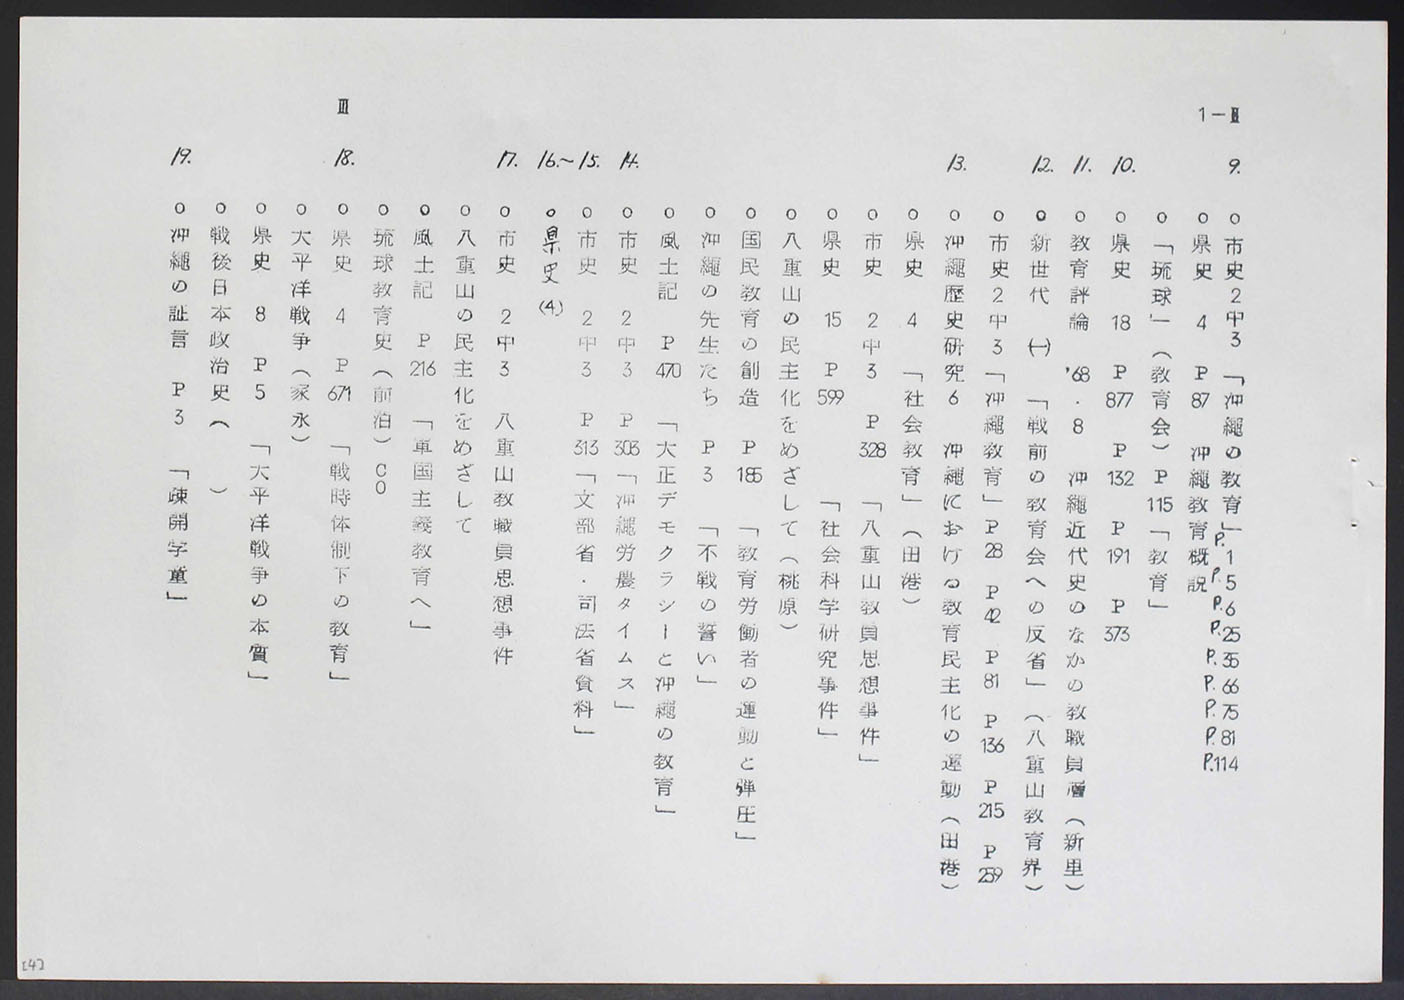 1-Ⅱ
9. ○市史2中3「沖縄の教育」P.1 P.5 P.6 P.25 P.35 P.66 P.75 P.81 P.114
○県史 4 P87 沖縄教育概説
○「琉球」(教育会)P115「教育」
10. ○県史 18 P877 P132 P191 P373
11. ○教育評論 '68・8 沖縄近代史のなかの教職員層(新里)
12. ○新世代 ㈠ 「戦前の教育会への反省」(八重山教育界)
○市史2中3「沖縄教育」P28 P42 P81 P136 P215 P259
13. ○沖縄歴史研究6 沖縄における教育民主化の運動(田港)
○県史 4 「社会教育」(田港)
○市史 2中3 P328 「八重山教員思想事件」
○県史 15 P599 「社会科学研究事件」
○八重山の民主化をめざして(桃原)
○国民教育の創造 P185 「教育労働者の運動と弾圧」
○沖縄の先生たち P3 「不戦の誓い」
○風土記 P470 「大正デモクラシーと沖縄の教育」
14. ○市史 2中3 P303「沖縄労農タイムス」
15. ○市史 2中3 P313「文部省・司法省資料」
16.~ ○県史(4)
17. ○市史 2中3 八重山教職員思想事件
○八重山の民主化をめざして
○風土記 P216 「軍国主義教育へ」
○琉球教育史(前泊)CO
Ⅲ
18. ○県史 4 P671 「戦時体制下の教育」
○大平洋戦争(家永)
○県史 8 P5 「大平洋戦争の本質」
○戦後日本政治史( )
19. ○沖縄の証言 P3 「疎開学童」
[4]